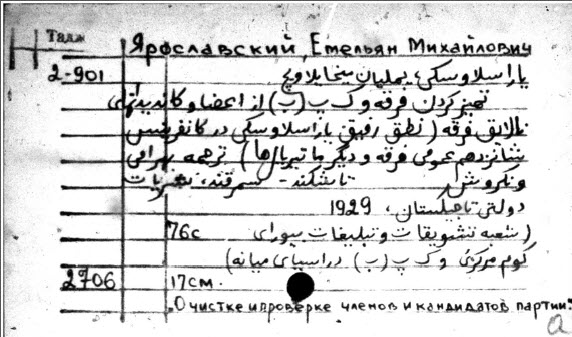 Тадж
Ярославский, Емельян Михайлович
2-901
یاراسلاوسکی، یملیان میخایلاویچ
تمیز کردن فرقه وک پ (ب) از اعضا و کاندیدتهای
نالایق فرقه (نطق رفیق یاراسلاوسکی در کانفرنس
شانزدهم عمومی فرقه و دیگر ماتیریال‌ها) ترجمه
تاشکند - سمرقند، نشریات
دولتی تاجیکستان، 1929
76с (شعبه تشویقات و تبلیغات بیورای
کوم مرکزی وک پ (ب) در آسیای میانه)
2706 17см.
О чистке и проверке членов и кандидатов партии.